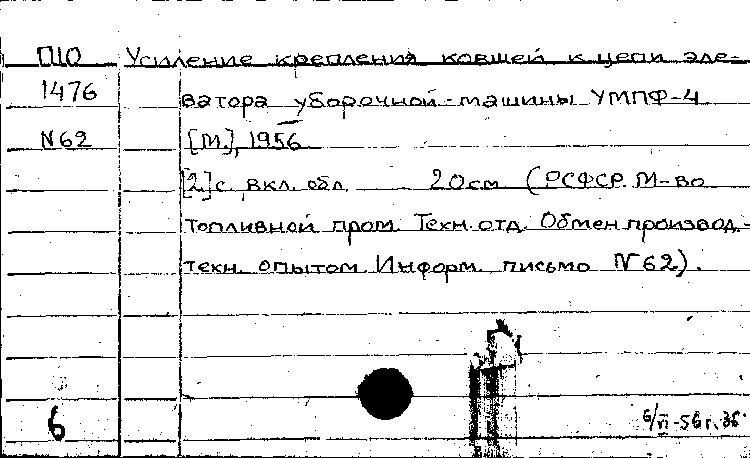 П10 Усиление крепления ковшей к цепи эле-
1476 ватора уборочной машины УМПФ-4
N62 [М.], 1956
[2] с. вкл. обл. 20см (РСФСР. М-во
топливной пром. Техн. отд. Обмен производ.-
техн. опытом. Информ. письмо N62).
6
6/VI-56г.